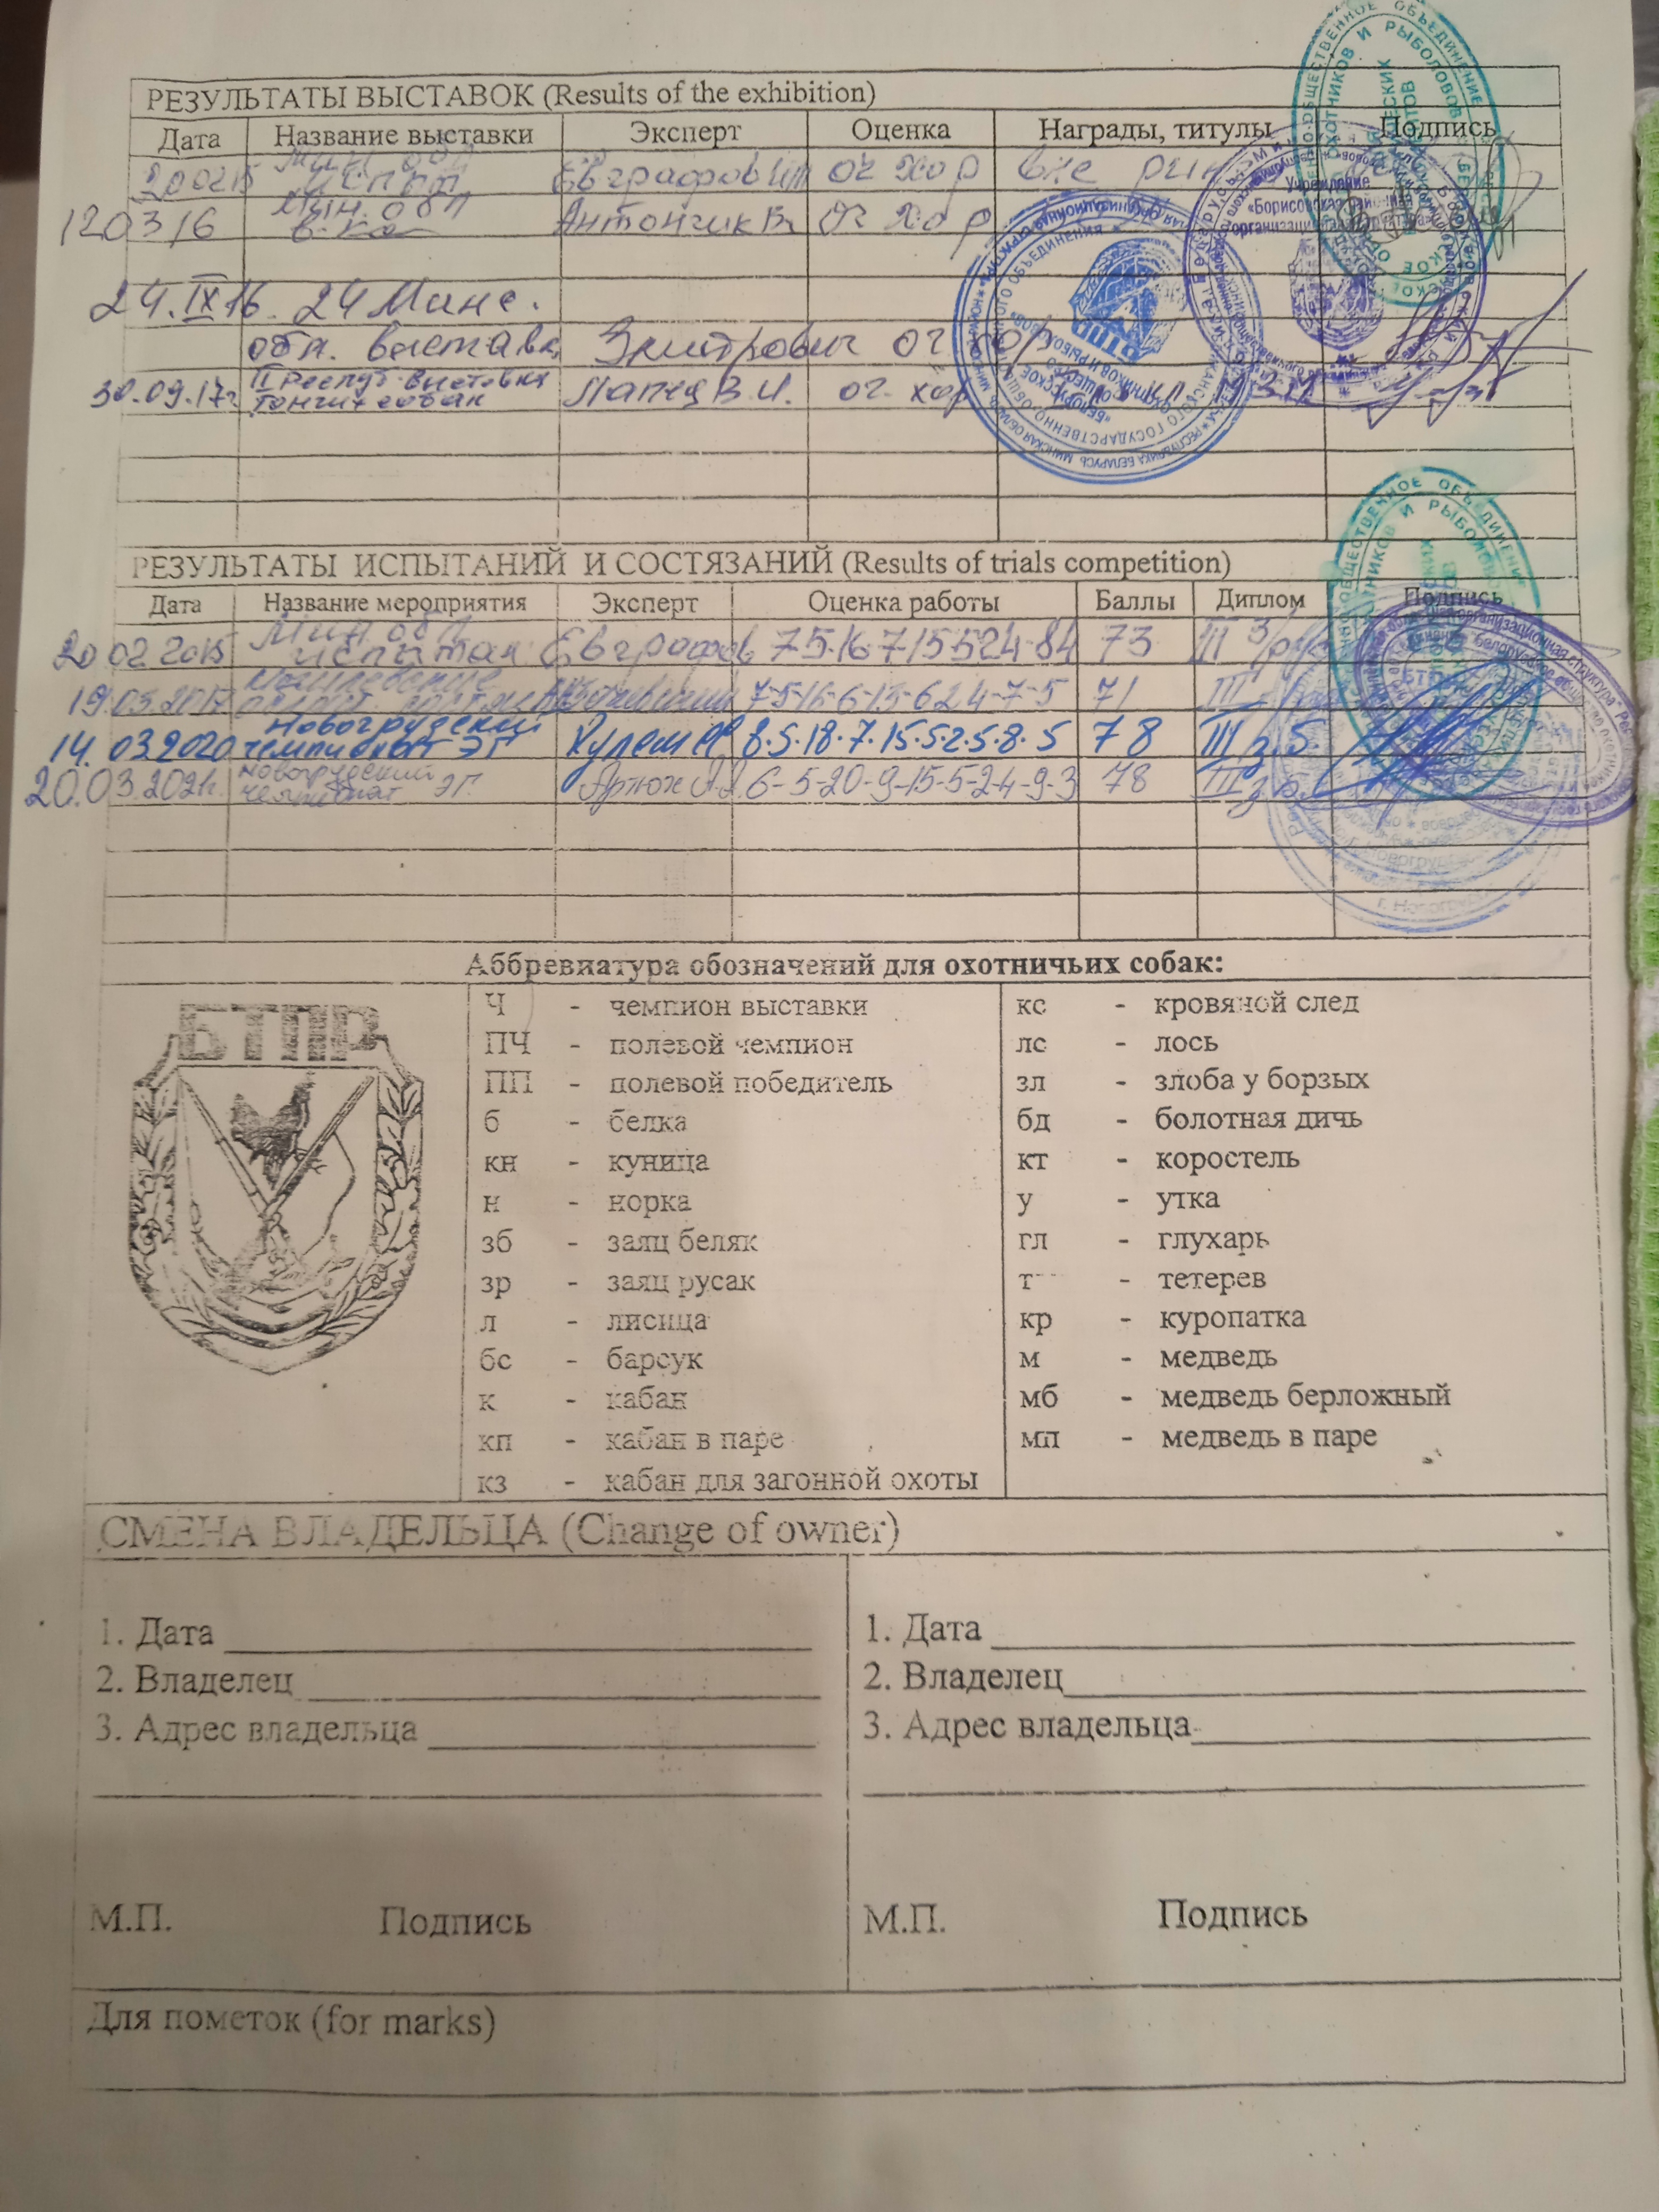 РЕЗУЛЬТАТЫ ВЫСТАВОК (Results of the exhibition)
Дата Название выставки Эксперт Оценка Награды, титулы Подпись
200215 Мин обл испыт Евграфов оч хор вне ринга
120316 Мин. обл в-ка Антончик В. Оч Хор
24.IX16. 24 Минс.
обл. выставка Змитрович оч хор
30.09.17г. II Респуб. выставка гончих собак Лапец В.И. оч. хор
РЕЗУЛЬТАТЫ ИСПЫТАНИЙ И СОСТЯЗАНИЙ (Results of trials competition)
Дата Название мероприятия Эксперт Оценка работы Баллы Диплом Подпись
20 02 2015 Мин обл испытан Евграфов 73 III з/р
19.03.2017 7-5-16-6-13-6 2 4-7-5 71 III
14. 03 2020 Новогрудский чемпионат ЭГ Кулеш 8.5.18.7.15.5.2.5.8.5 78 III з.б.
20.03.2021г. Новогрудский чемпионат ЭГ. Артюх А.А. 6-5-20-9-15-5-2-4-9-3 78 III з.б.
Аббревиатура обозначений для охотничьих собак:
БТПР
Ч - чемпион выставки кс - кровяной след
ПЧ - полевой чемпион лс - лось
ПП - полевой победитель зл - злоба у борзых
б - белка бд - болотная дичь
кн - куница кт - коростель
н - норка у - утка
зб - заяц беляк гл - глухарь
зр - заяц русак т - тетерев
л - лисица кр - куропатка
бс - барсук м - медведь
к - кабан мб - медведь берложный
кп - кабан в паре мп - медведь в паре
кз - кабан для загонной охоты
СМЕНА ВЛАДЕЛЬЦА (Change of owner)
1. Дата 1. Дата
2. Владелец 2. Владелец
3. Адрес владельца 3. Адрес владельца
М.П. Подпись М.П. Подпись
Для пометок (for marks)